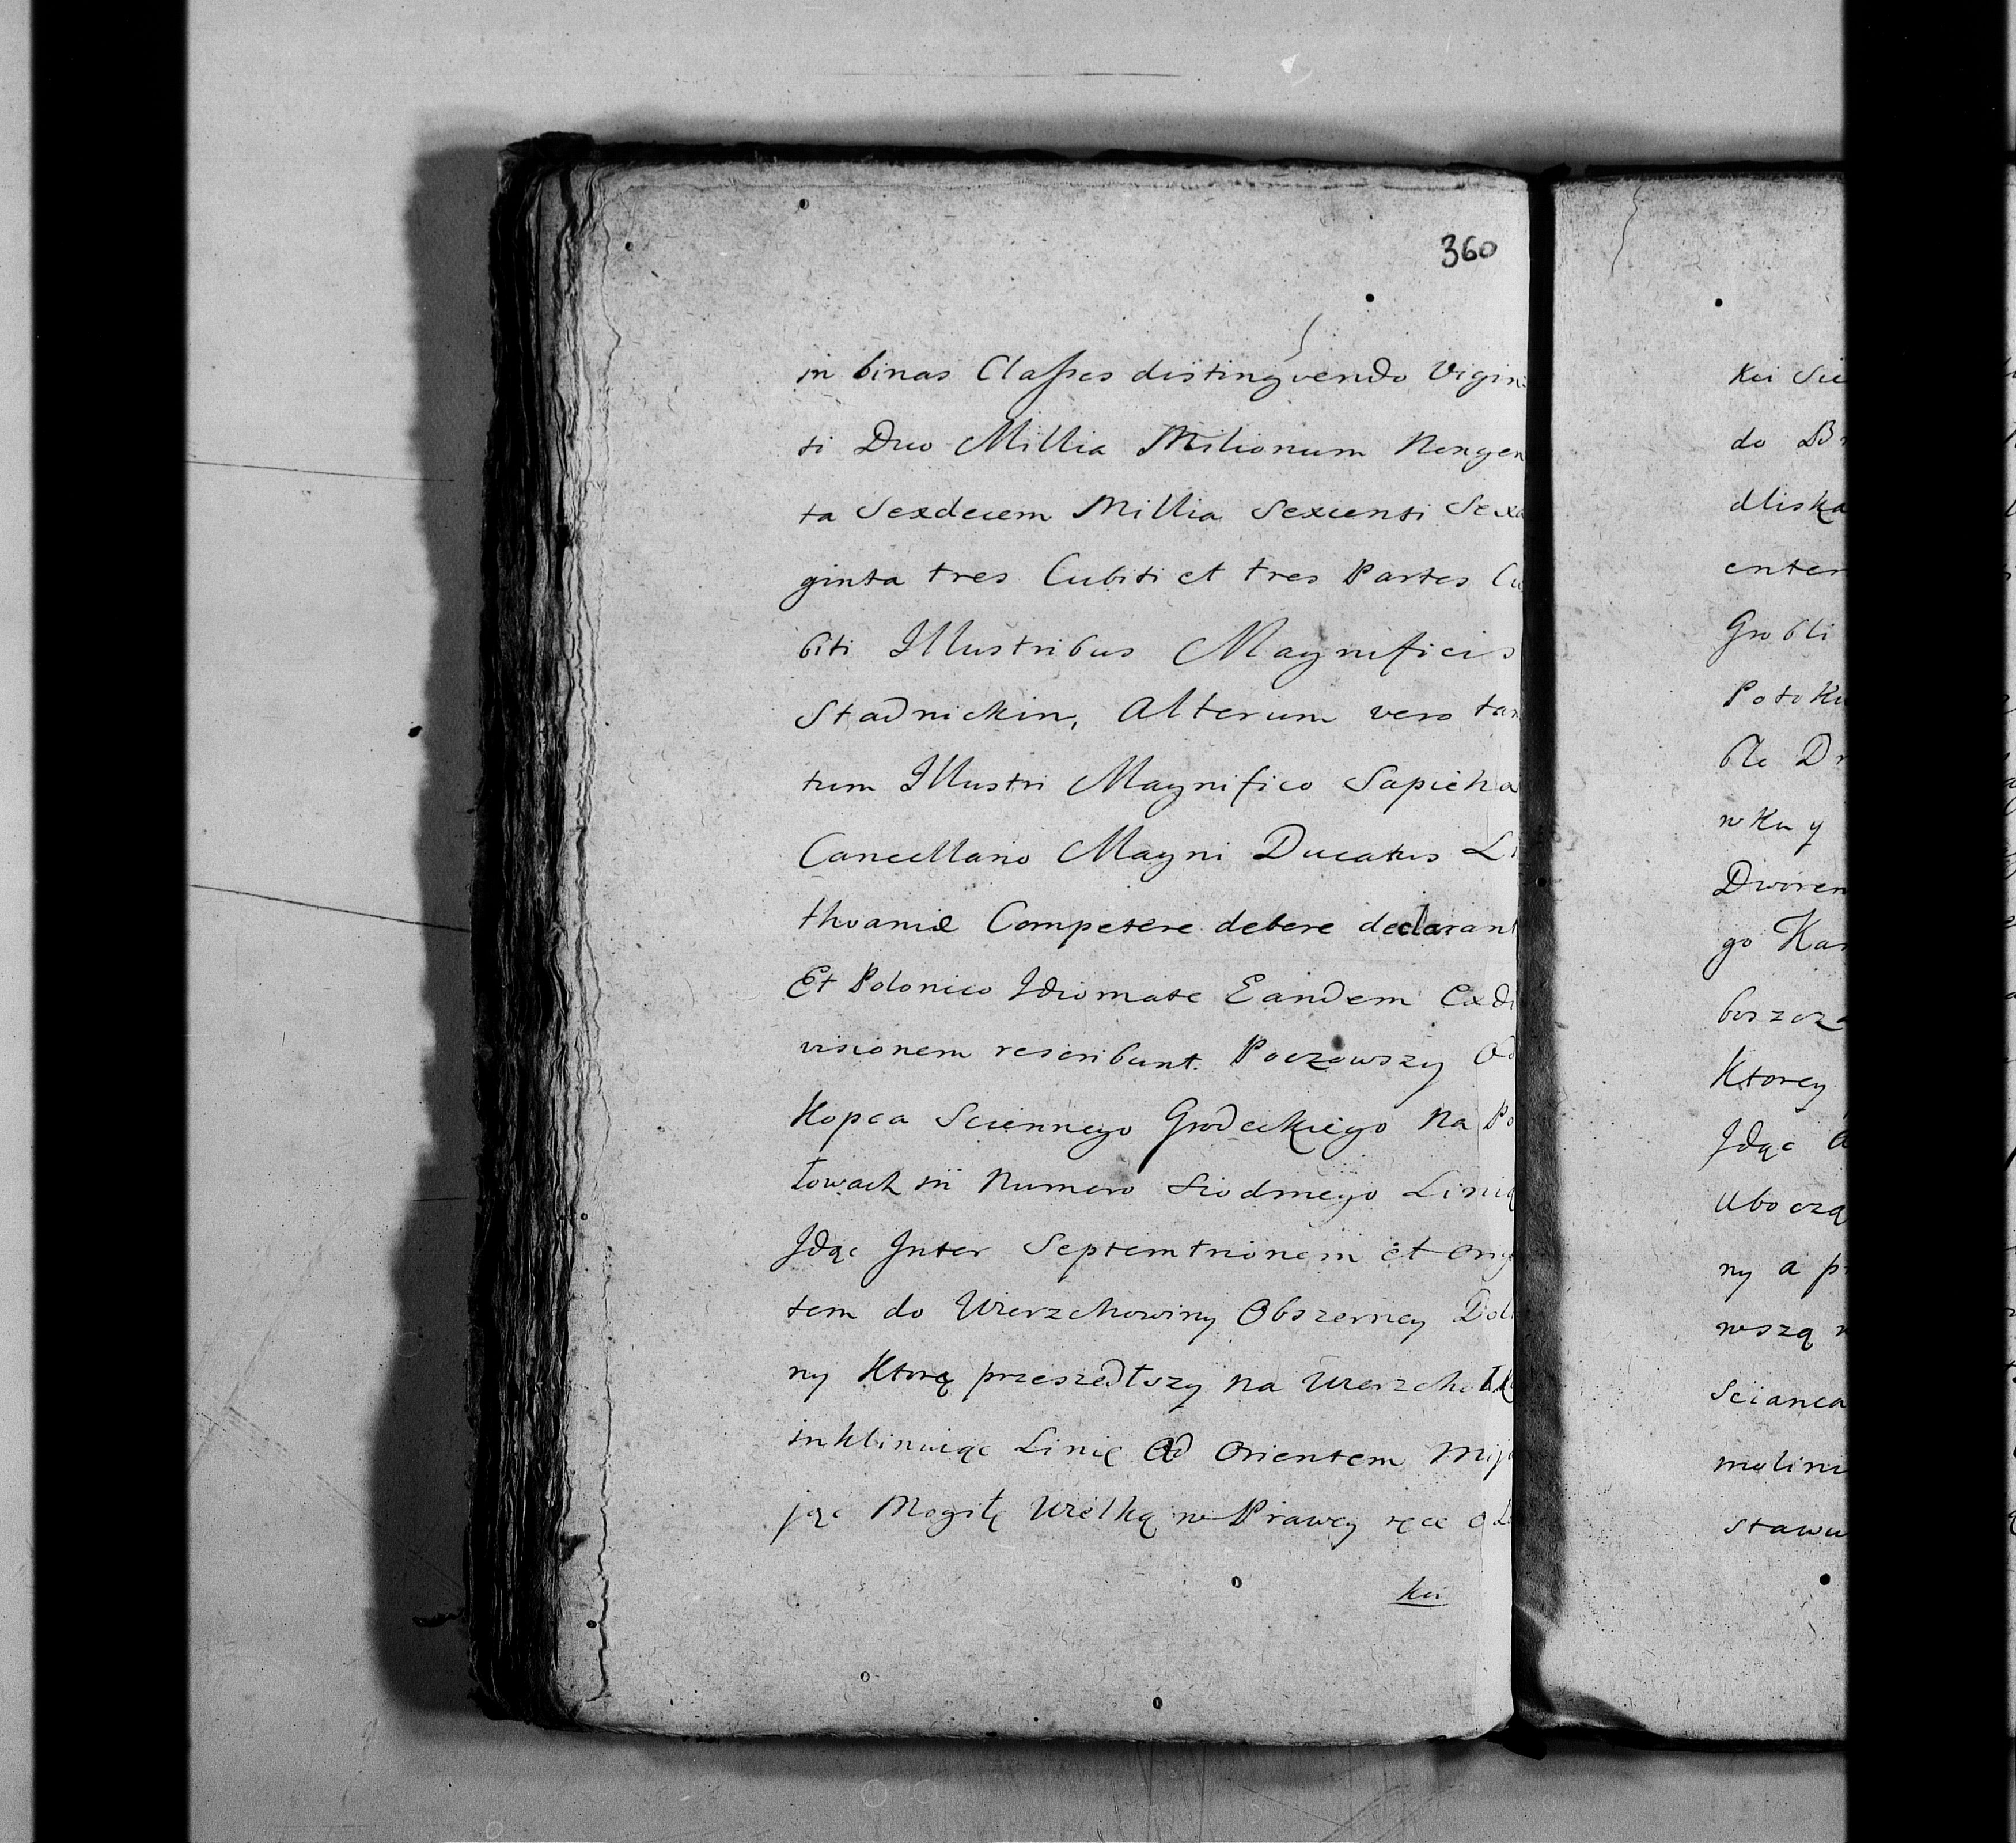 360
in binas Classes distinguendo Vigin
ti Duo Millia Milionum Nongen
ta Sexdecem Millia Sexcenti Sexa
ginta tres Cubiti et tres Partes Cu
biti Illustribus Magnificis
Stadnickin, Alterum vero tan
tum Illustri Magnifico Sapieha
Cancellario Magni Ducatus Li
thvaniæ Competere debere declarant
Et Polonico Idiomate Eandem Exdi
visionem rescribunt. Poczowszy Od
Kopca Sciennego Grodeckiego Na Po
łowach in Numero Siodmego Linią
Jdąc Inter Septemtrionem et Orię
tem do Wierzchowiny Obszerney Doli
ny Ktorą przeszedłszy na Wierzchołk
inklinuiąc Linię Ad Orientem Mija
jąc Mogiłę Wielką w Prawey ręce
ku
kei Sie
do
dliska
enter
Grobli
Potoku
ble
wku y
Dworen
go Kar
boszcza
Ktorey
Jdąc
Uboczą
ny a
wszą
Scianca
molinu
stawu